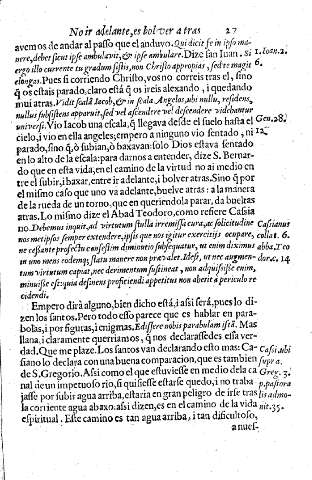 No ir adelante, es bolver a tras 27
avemos de andar al passo que el anduvo. Qui dicit se in ipso ma-
nere, debet sicut ipse ambulavit, & ipse ambulare. Dize san Iuan. si 1. Ioan. 2.
ergo illo currente tu gradum sistis, non Christo appropias, sed te magis 6.
elongas. Pues si corriendo Christo, vos no correis tras el, sino
q̃ os estais parado, claro está q̃ os ireis alexando, i quedando
mui atras. Vidit scalã Jacob, & in scala Angelos, ubi nullus residens,
nullus subsistens apparuit, sed vel ascendere vel descendere videbantur
universi. Vio Iacob una escala, q̃ llegava desde el suelo hasta el Gen. 28.
cielo, i vio en ella angeles; empero a ninguno vio sentado, ni 12.
parado, sino q̃, o subian, o baxavan: solo Dios estava sentado
en lo alto de la escala: para darnos a entender, dize S. Bernar-
do que en esta vida, en el camino de la virtud no ai medio en
tre el subir, i baxar, entre ir adelante, i bolver atras. Sino q̃ por
el mismo caso que uno va adelante, buelve atras: a la manera
de la rueda de un torno, que en queriendola parar, da bueltas
atras. Lo mismo dize el Abad Teodoro, como refiere Cassia
no. Debemus inquit, ad virtutum studia irremissa cura, ac solicitudine Cassianus
nos metipsos semper extendere, ipsis que nos iugiter exercitijs ocupare, collat. 6.
ne cessante profectu confestim diminutio subsequatur, ut enim diximus abba. Teo
in uno mens eodemq; statu manere non prævalet. Idest, ut nec augmen- dor. c. 14
tum virtutum capiat, nec derimentum sustineat, non adquisisse enim,
minuisse est; quia desinens proficiendi appetitus non aberit à periculo re
cidendi.
Empero dirà alguno, bien dicho està, i assi serà, pues lo di-
zen los santos. Pero todo esso parece que es hablar en para-
bolas, i por figuras, i enigmas. Edissere nobis parabolam istã. Mas
llana, i claramente querriamos, q̃ nos declarassedes essa ver-
dad. Que me plaze. Los santos van declarando esto mas: Ca- Cassi. ubi
siano lo declara con una buena comparacion, que es tambien supra.
de S. Gregorio. Assi como el que estuviesse en medio de la ca Greg. 3.
nal de un impetuoso rio, si quisiesse estarse quedo, i no traba p, pastora
jasse por subir agua arriba, estaria en gran peligro de irse tras lis admo-
la corriente agua abaxo. assi dizen, es en el camino de la vida nit. 35.
espiritual. Este camino es tan agua arriba, i tan dificultoso,
a nues-